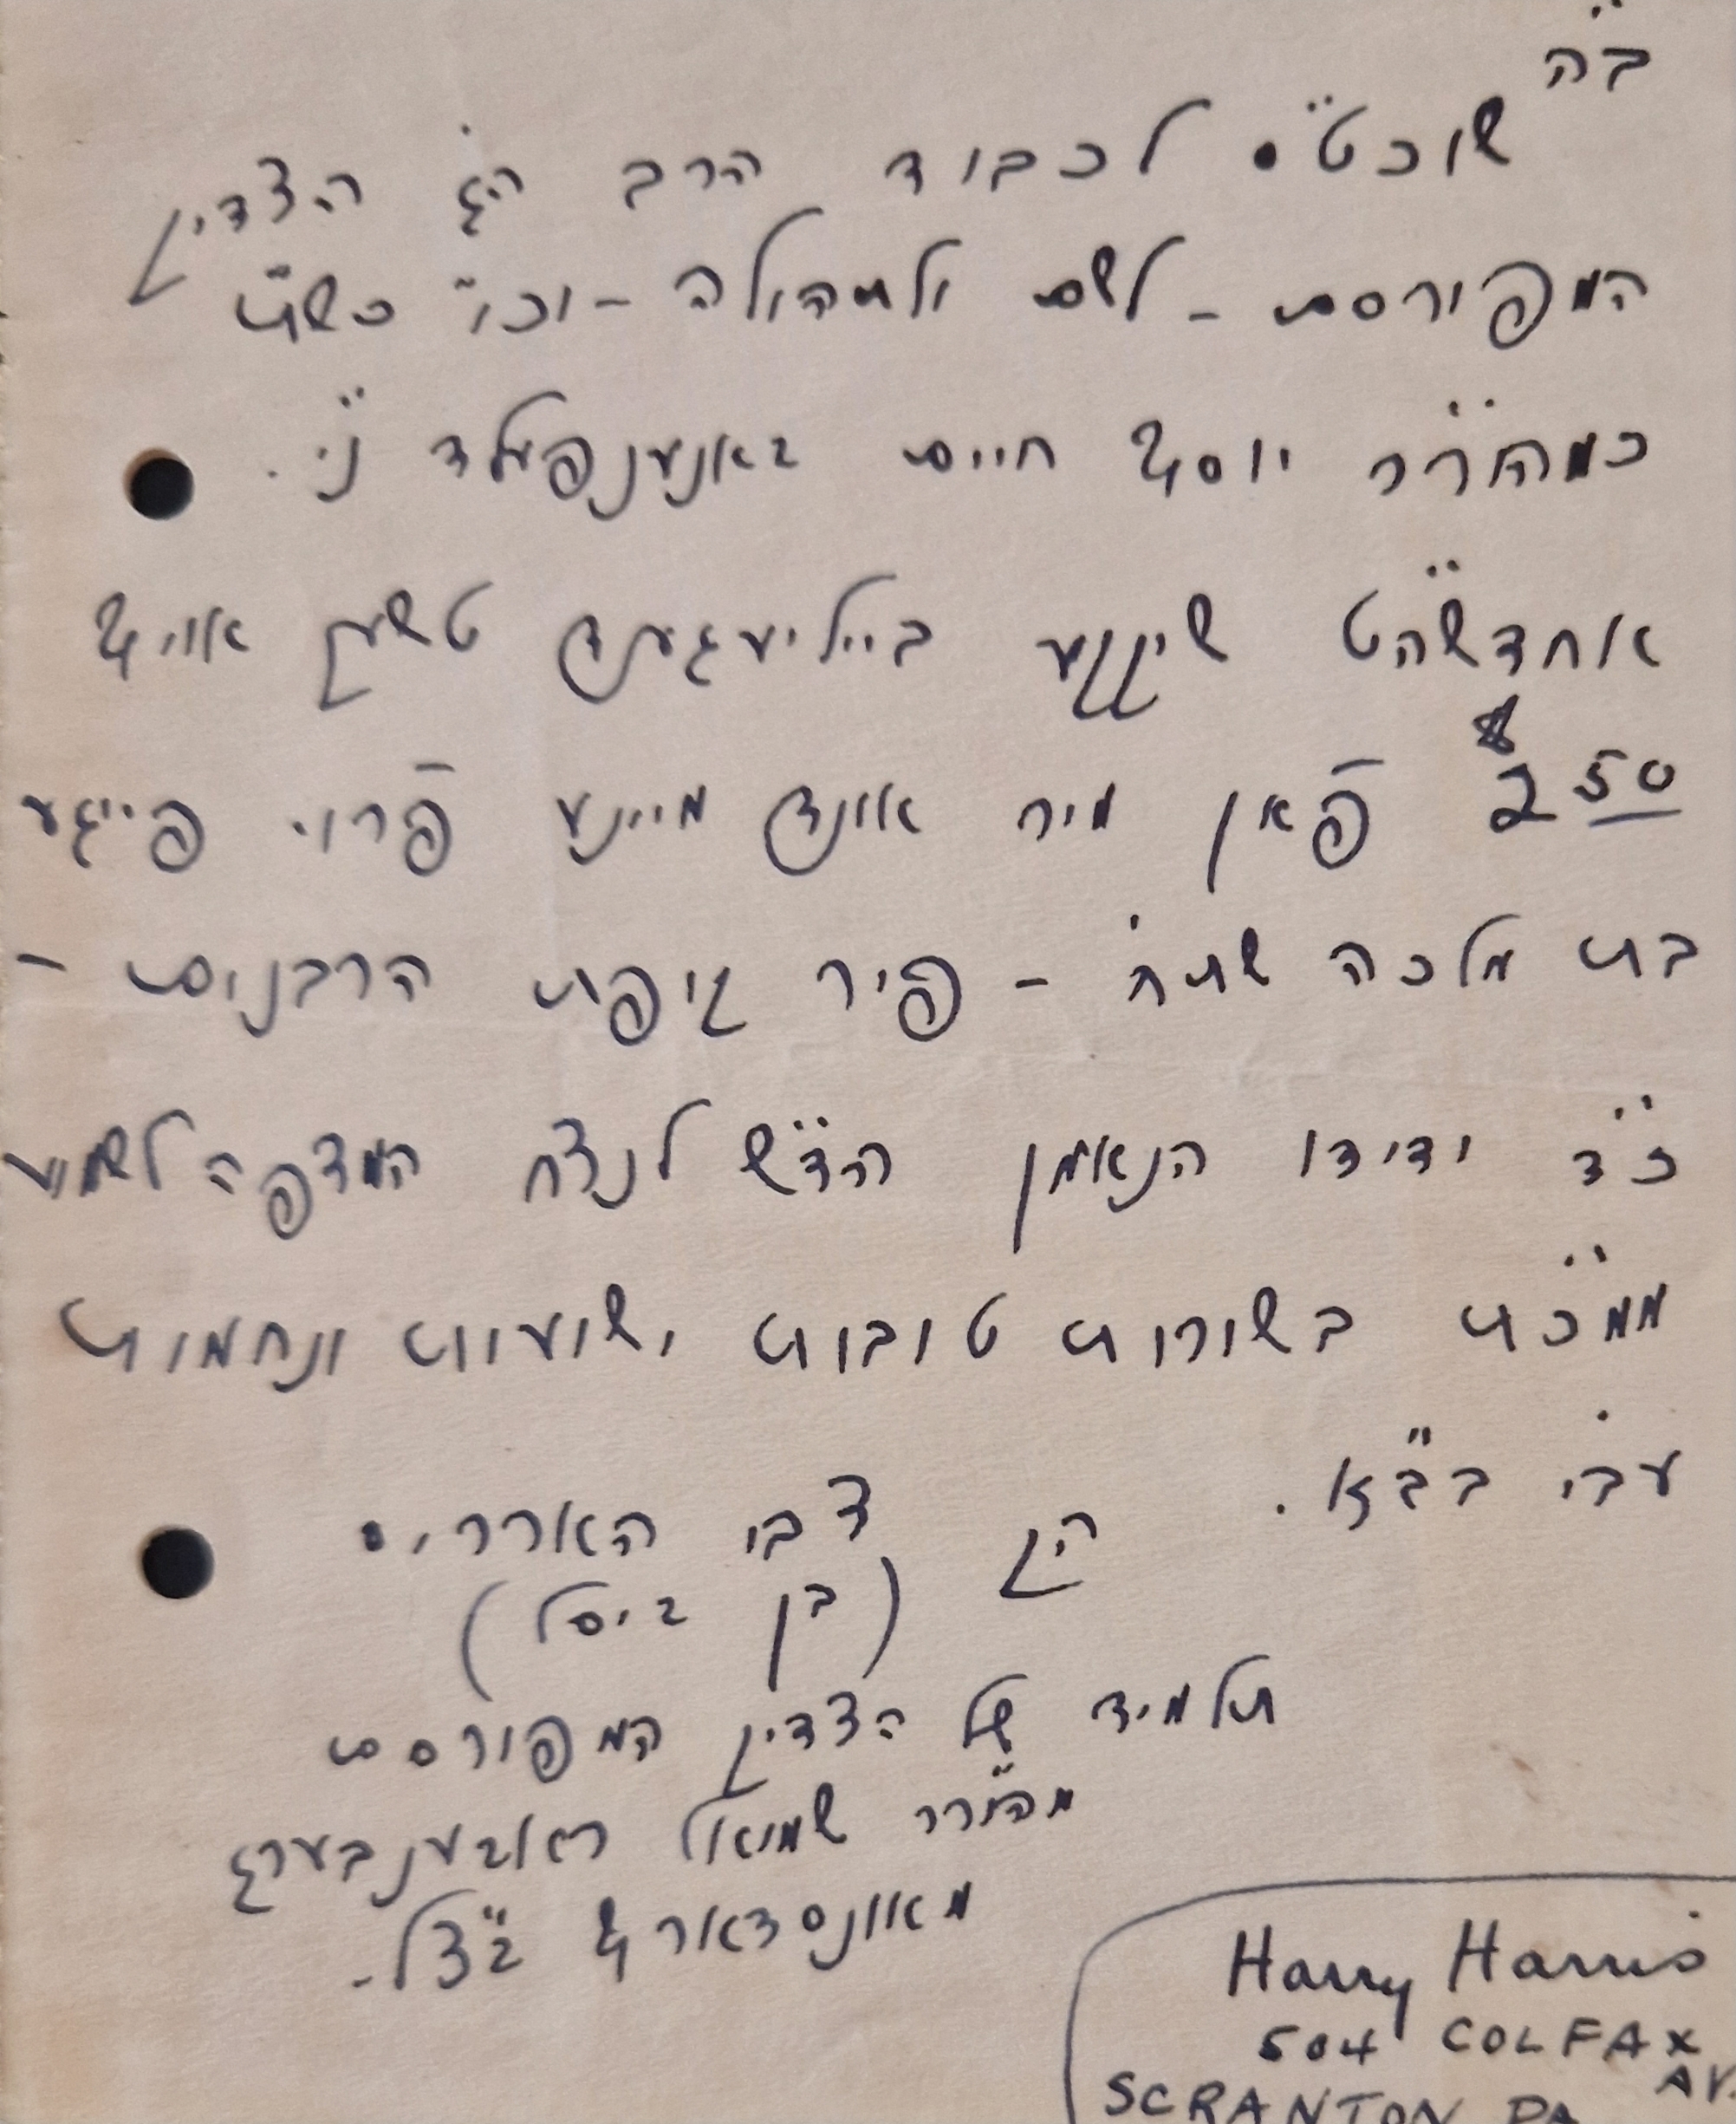 ב״ה
שוכט״ס לכבוד הרב הג׳ הצדיק
המפורסם - לשם ולתהולה - וכו׳ כש״ת
כמהור״ר יוסף חיים זאנענפעלד נ״י.
אחדשה״ט שיקע בייליעגענד טשעק אויף
$2.50 פֿאן מיר אונד מיינע פֿרוי פייגע
בת מלכה שתח׳ - פיר קופת הרבנים -
כ״ד ידידו הנאמן הד״ש לנצח המצפה לשמוע
ממכ״ת בשורות טובות ישועות ונחמות
עבי׳ בב״א.
הק׳ צבי האררים
(בן זיסל)
תלמיד של הצדיק המפורסם
מהור״ר שמואל ראזענבערג
מאונסדארף זצ״ל.
Harry Harris
504 COLFAX
AV.
SCRANTON PA